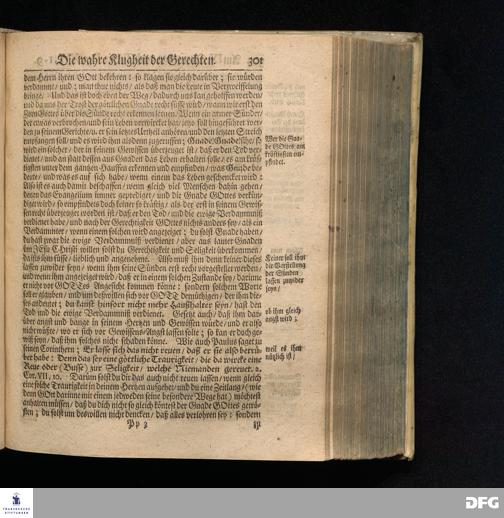 Die wahre Klugheit der Gerechten. 301
dem Herrn ihren GOtt bekehren: so klagen sie gleich darüber; sie würden
verdammt/ und; man thue nichts/ als daß man die Leute in Verzweiffelung
bringe/ Und das ist doch eben der Weg/ dadurch uns kan geholffen werden/
und da uns der Trost der göttlichen Gnade recht süsse wird/ wann wir erst den
Zorn Gottes über die Sünde recht erkennen lernen. Wenn ein armer Sünder/
der etwas verbrochen/ und sein Leben verwircket hat/ jetzo soll hingeführet wer-
den zu seinem Gerichte/ u. er sein letztes Urtheil anhören/ und den letzten Streich
empfangen soll/ und es wird ihm alsdenn zugeruffen; Gnade! Gnade! siehe/ so
wird ein solcher/ der in seinem Gewissen überzeuget ist/ daß er den Tod ver-
dienet/ und an statt dessen aus Gnaden das Leben erhalten solle/ es am kräf-
tigsten unter dem gantzen Hauffen erkennen und empfinden/ was Gnade be-
deute/ und was es auf sich habe/ wenn einem das Leben geschencket wird:
Also ist es auch damit beschaffen/ wenn gleich viel Menschen dahin gehen/
denen das Evangelium immer geprediget/ und die Gnade GOttes verkün-
diget wird/ so empfindets doch keiner so kräftig/ als der erst in seinem Gewis-
sen recht überzeuget worden ist/ daß er den Tod/ und die ewige Verdammniß
verdienet habe/ und nach der Gerechtigkeit GOttes nichts anders sey/ als ein
Verdammter/ wenn einem solchen wird angezeiget; du solst Gnade haben/
du hast zwar die ewige Verdammniß verdienet/ aber aus lauter Gnaden
um JEsu Christi willen solst du Gerechtigkeit und Seligkeit überkommen/
da ists ihm süsse/ lieblich und angenehme. Also muß ihm denn keiner dieses
lassen zuwider seyn/ wenn ihm seine Sünden erst recht vorgestellet werden/
und wenn ihm angezeiget wird/ daß er in einem solchen Zustande sey/ darinne
er nicht vor GOTTes Angesicht kommen könne: sondern solchem Worte
soll er glauben/ und um deswillen sich vor GOTT demüthigen/ der ihm die-
ses andeutet; du kanst hinfort nicht mehr Haußhalter seyn/ hast den
Tod und die ewige Verdammniß verdienet. Gesetzt auch/ daß ihm dar-
über angst und bange in seinem Hertzen und Gewissen würde/ und er also
nicht wüßte/ wo er sich vor Gewissens-Angst lassen solte; so kan er doch ge-
wiß seyn/ daß ihm solches nicht schaden könne. Wie auch Paulus saget zu
seinen Corinthern; Er lasse sich das nicht reuen/ daß er sie also betrü-
bet habe: Denn das sey eine göttliche Traurigkeit/ die da wircke eine
Reue oder (Busse) zur Seligkeit/ welche Niemanden gereuet. 2.
Cor. VII, 10. Darum solst du dir das auch nicht reuen lassen/ wenn gleich
eine solche Traurigkeit in deinem Hertzen aufgehet/ und du eine Zeitlang/ (wie
dem GOtt darinne mit einem jedweden seine besondere Wege hat) möchtest
anhalten müssen/ daß du dich nicht so gleich köntest der Gnade GOttes getrö-
sten; du solst um deswillen nicht dencken/ daß alles verlohren sey: sondern
Pp 3
Wer die Gna-
de GOttes am
kräftigsten em-
pfindet.
Keiner soll ihm
die Vorstellung
der Sünden
lassen zuwider
seyn/
ob ihm gleich
angst wird;
weil es ihm
nützlich ist/
FRANCKESCHE
STIFTUNGEN
DFG